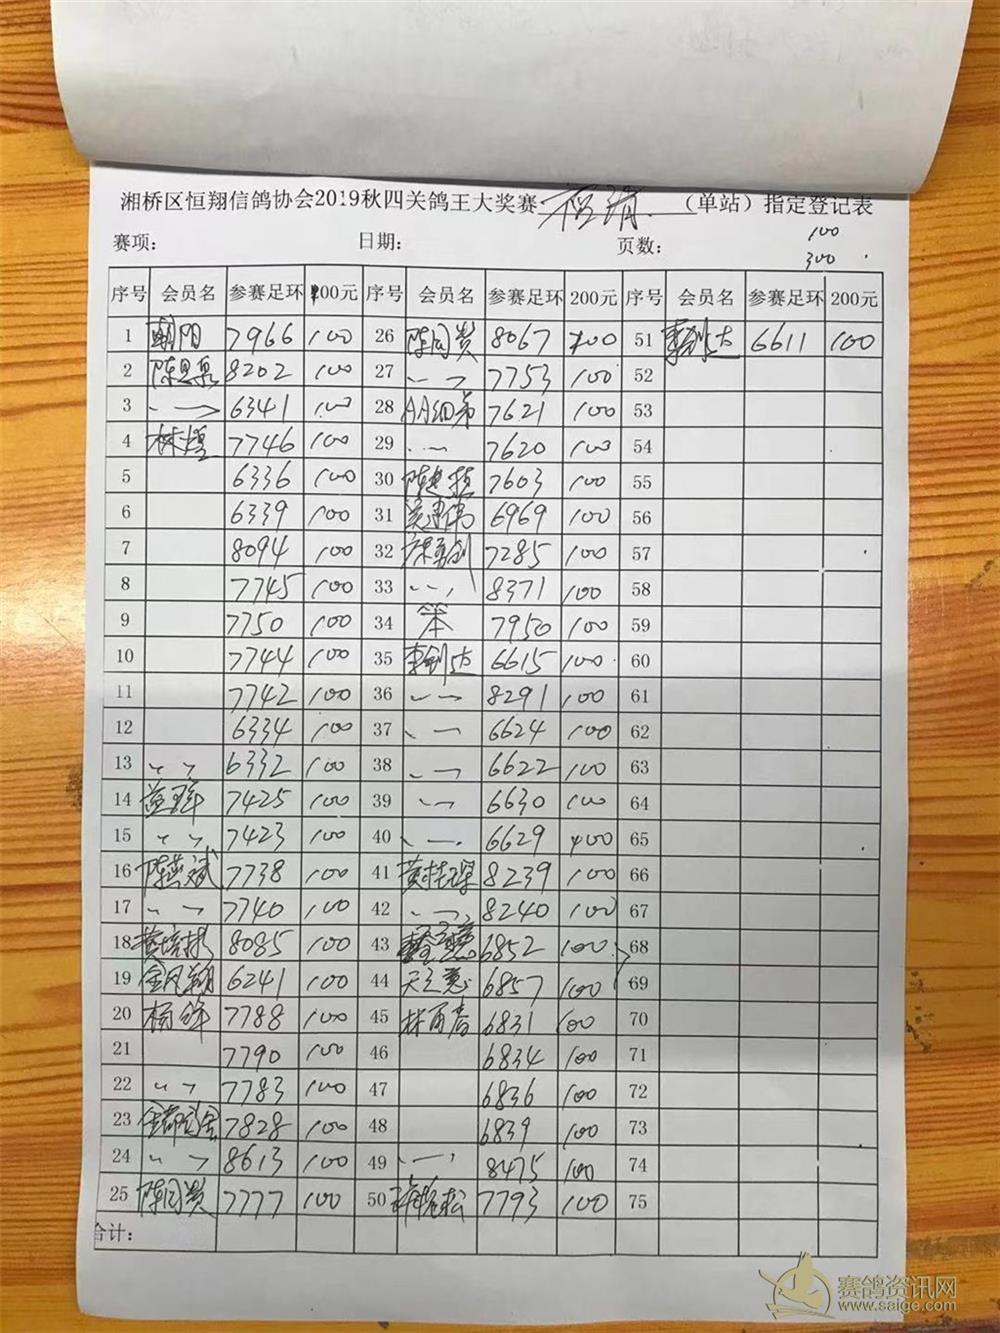 湘桥区恒翔信鸽协会2019秋四关鸽王大奖赛 （单站）指定登记表
100
赛项： 日期： 页数： 300
序号 会员名 参赛足环 100元 序号 会员名 参赛足环 200元 序号 会员名 参赛足环 200元
1 朝阳 7966 100 26 陈同贵 8067 100 51 李剑达 6611 100
2 陈思泉 8202 100 27 〃 7753 100 52
3 〃 6341 100 28 AA细弟 7621 100 53
4 林煌 7746 100 29 〃 7620 100 54
5 6336 100 30 7603 100 55
6 6339 100 31 吴建伟 6969 100 56
7 8094 100 32 7285 100 57
8 7745 100 33 〃 8371 100 58
9 7750 100 34 笨 7950 100 59
10 7744 100 35 李剑达 6615 100 60
11 7742 100 36 〃 8291 100 61
12 6334 100 37 〃 6624 100 62
13 〃 6332 100 38 〃 6622 100 63
14 7425 100 39 〃 6630 100 64
15 〃 7423 100 40 〃 6629 100 65
16 陈燕斌 7738 100 41 黄桂琛 8239 100 66
17 〃 7740 100 42 〃 8240 100 67
18 黄培彬 8085 100 43 6852 100 68
19 金凤翔 6241 100 44 6857 100 69
20 杨锋 7788 100 45 林再春 6831 100 70
21 7790 100 46 6834 100 71
22 〃 7783 100 47 6836 100 72
23 7828 100 48 6839 100 73
24 〃 8613 100 49 〃 8475 100 74
25 陈同贵 7777 100 50 7793 100 75
合计：
赛鸽资讯网
www.saige.com